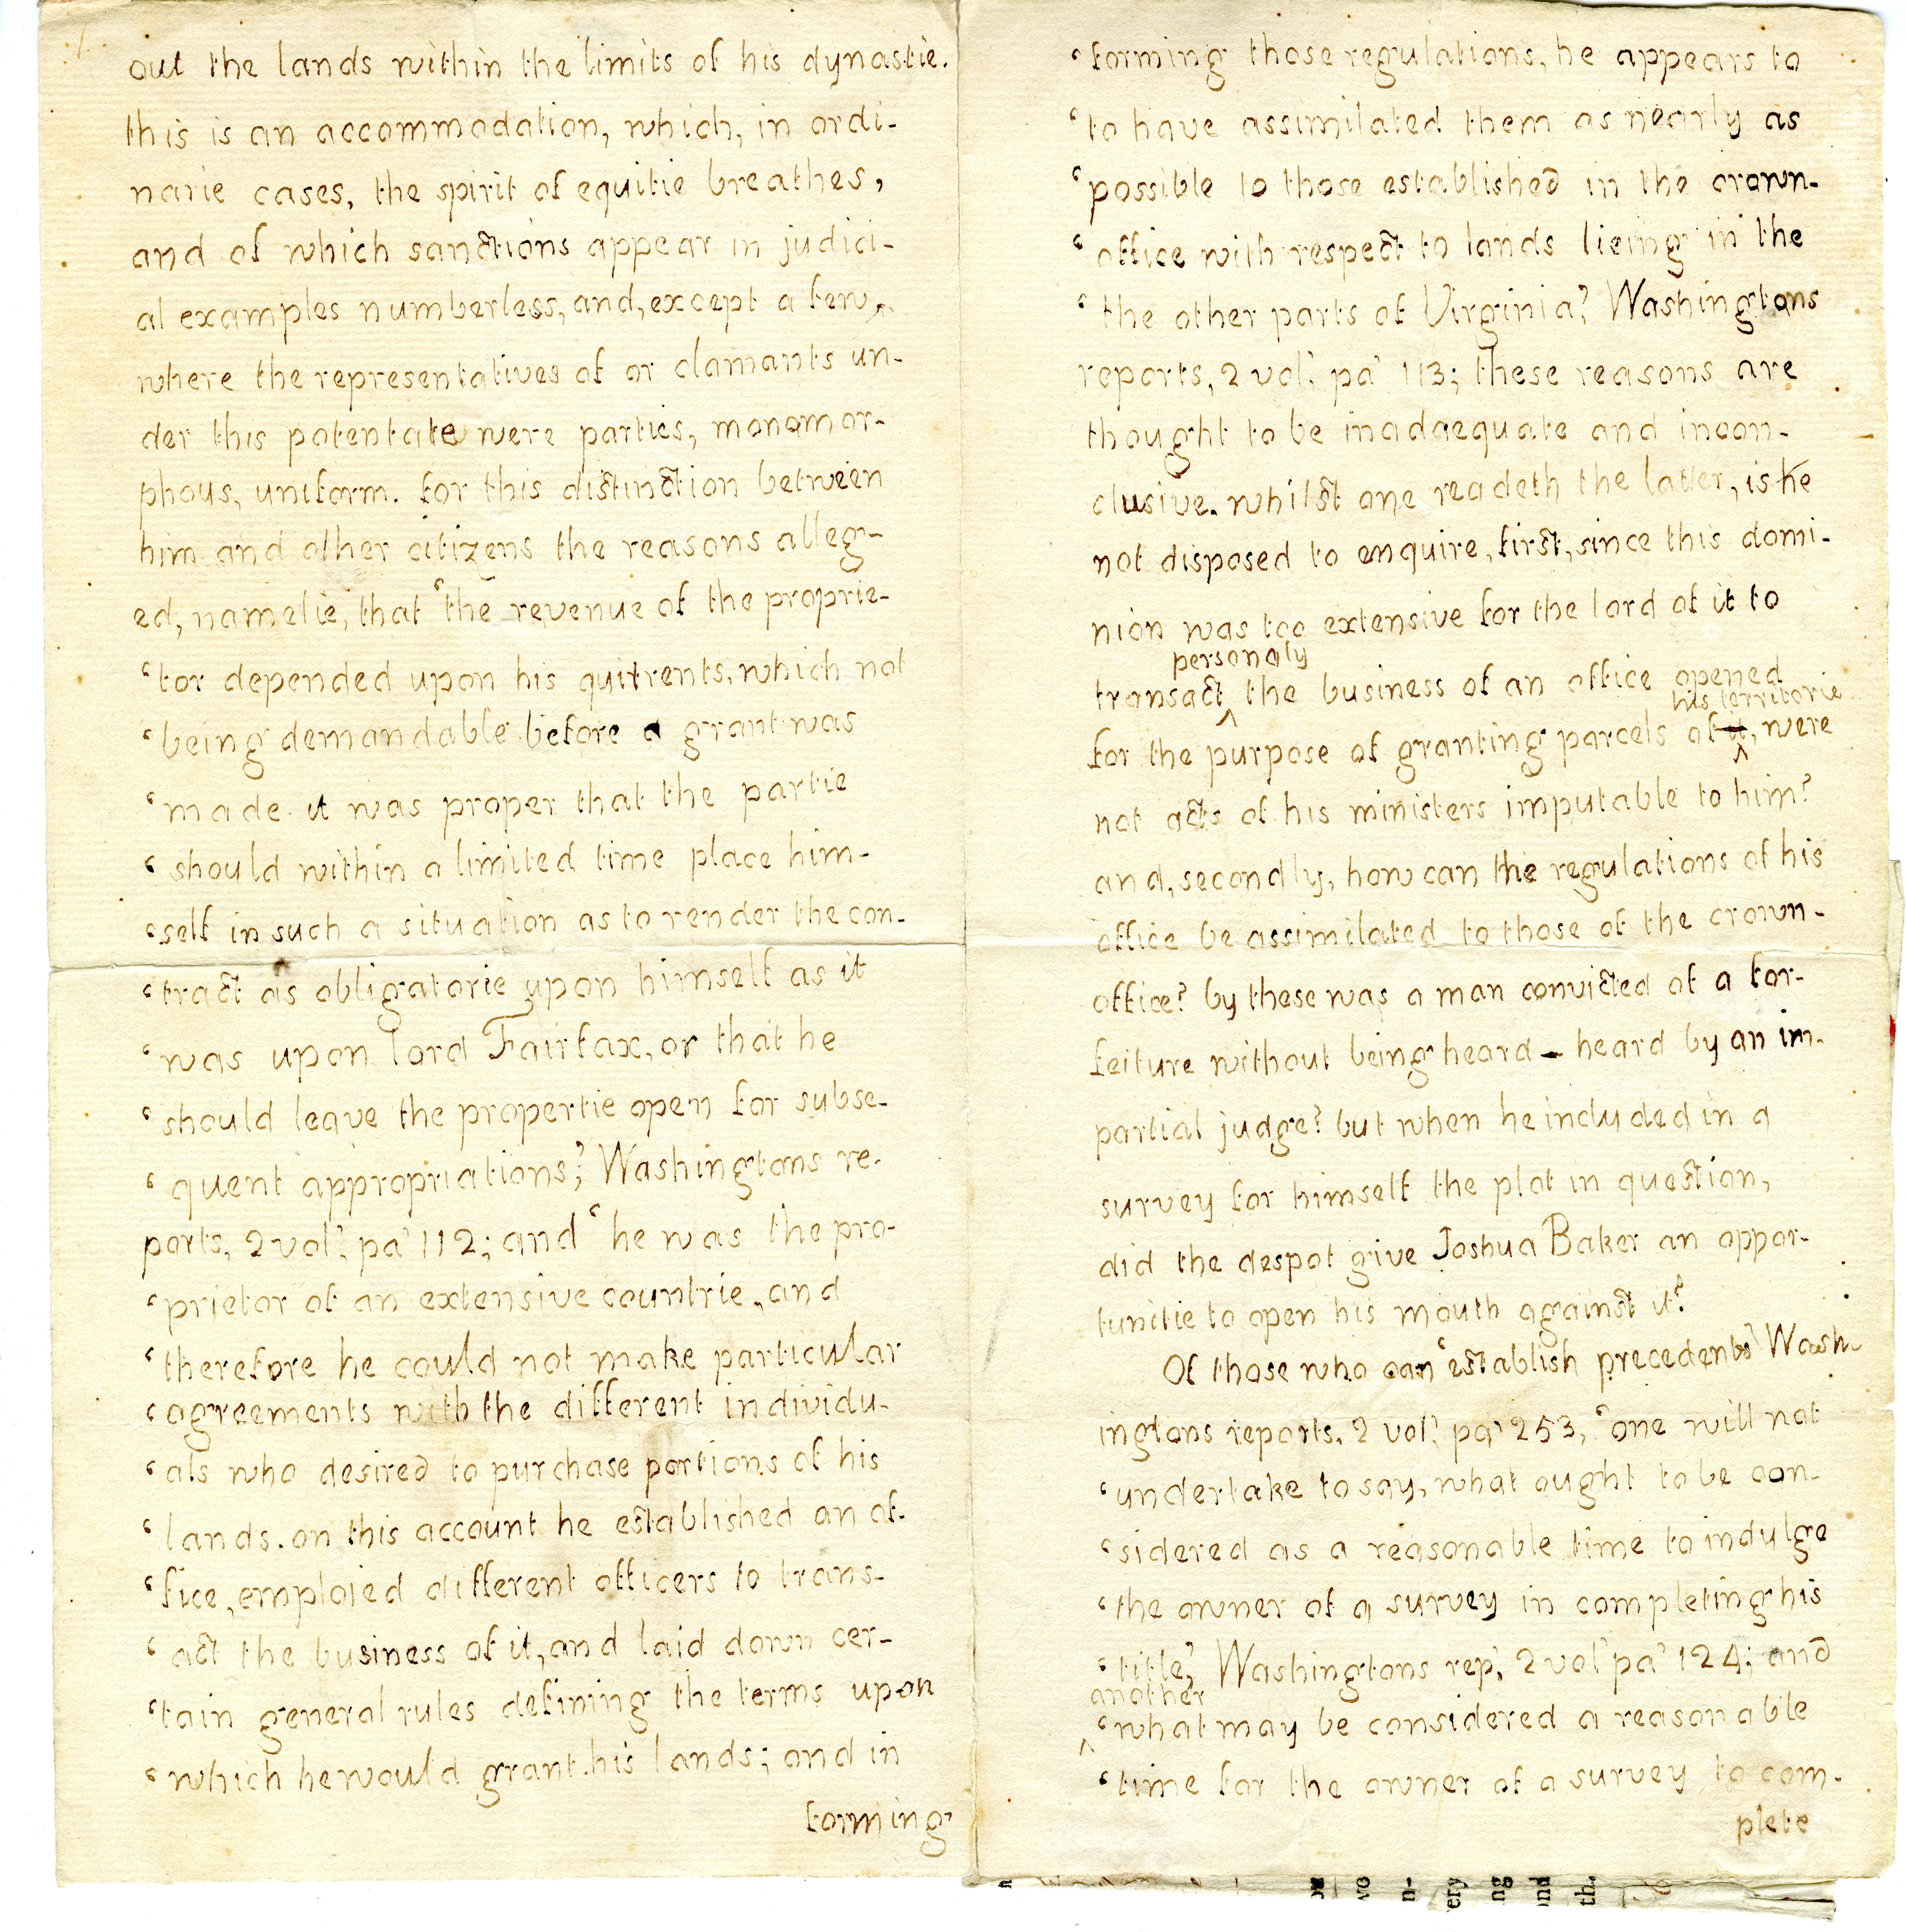 out the lands within the limits of his dynastie.
this is an accommodation, which, in ordi-
narie cases, the spirit of equitie breathes,
and of which sanctions appear in judici-
al examples numberless, and, except a few,
where the representatives of or clamants un-
der this potentate were parties, monomor-
phous, uniform. for this distinction between
him and other citizens the reasons alleg-
ed, namelie, that ‘the revenue of the proprie-
‘tor depended upon his quitrents, which not
‘being demandable before a grant was
‘made it was proper that the partie
‘should within a limited time place him-
‘self in such a situation as to render the con-
‘tract as obligatorie upon himself as it
‘was upon lord Fairfax, or that he
‘should leave the propertie open for subse-
‘quent appropriations;’ Washingtons re-
ports, 2 vol’. pa’ 112; and ‘he was the pro-
‘prietor of an extensive countrie, and
‘therefore he could not make particular
‘agreements with the different individu-
‘als who desired to purchase portions of his
‘lands. on this account he established an of-
‘fice, emploied different officers to trans-
‘act the business of it, and laid down cer-
‘tain general rules defining the terms upon
‘which he would grant his lands; and in
forming
‘forming those regulations, he appears to
‘to have assimilated them as nearly as
‘possible to those established in the crown-
‘office with respect to lands lieing in the
‘the other parts of Virginia?’ Washingtons
reports, 2 vol’. pa’ 113; these reasons are
thought to be inadaequate and incon-
clusive. whilst one readeth the latter, is he
not disposed to enquire, first, since this domi-
nion was too extensive for the lord of it to
personaly
transact ^ the business of an office opened
his territorie
for the purpose of granting parcels of it ^, were
not acts of his ministers imputable to him?
and, secondly, how can the regulations of his
office be assimilated to those of the crown-
office? by these was a man convicted of a for-
feiture without being heard — heard by an im-
partial judge? but when he included in a
survey for himself the plat in question,
did the despot give Joshua Baker an oppor-
tunitie to open his mouth against it?
Of those who can ‘establish precedents’ Wash-
ingtons reports, 2 vol’. pa’ 253, ‘one will not
‘undertake to say, what ought to be con-
‘sidered as a reasonable time to indulge
‘the owner of a survey in completing his
‘title,’ Washingtons rep’, 2 vol’ pa’ 124; and
another
^ ‘what may be considered a reasonable
‘time for the owner of a survey to com-
plete